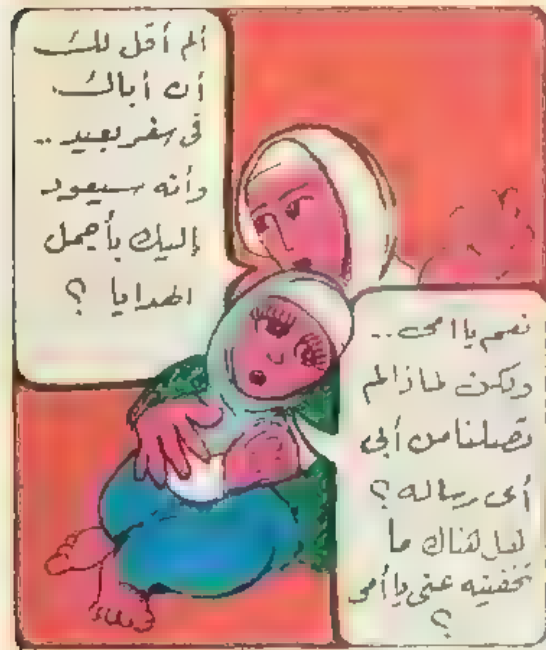 ألم أقل لك
أن أباك
في سفر بعيد ..
وأنه سيعود
إليك بأجمل
الهدايا ؟
نعم يا أمى ..
ولكن لماذا لم
تصلنا من أبى
أى رساله ؟
لعل هناك ما
تخفينه عنى يا أمى
؟